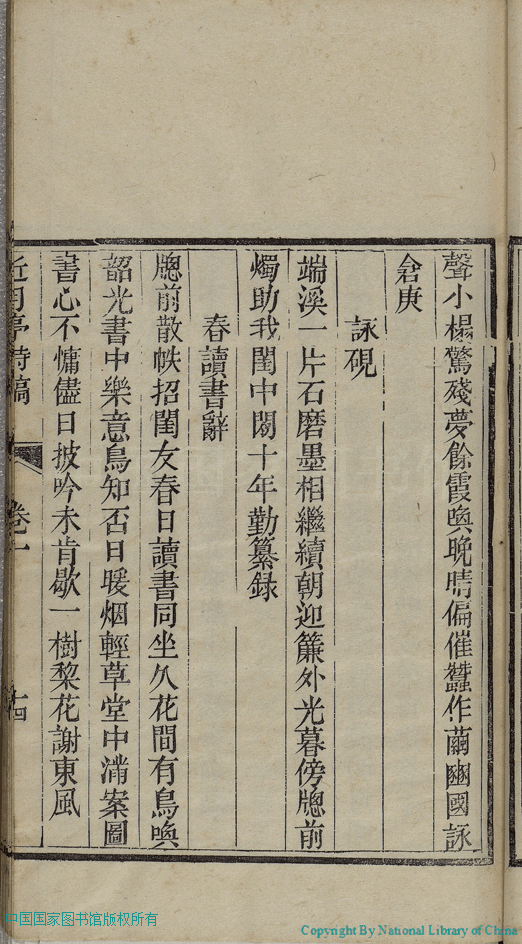 聲小楊驚殘夢餘霞喚晚晴偏催蠶作繭豳國詠
倉庚
詠硯
端溪一片石磨墨相繼續朝迎簾外光暮傍牕前
燭助我閨中閱十年勤纂録
春讀書辭
牕前散帙招閨友春日讀書同坐久花間有鳥喚
韶光書中樂意鳥知否日暖烟輕草堂中滿案圖
書心不慵儘日披吟未肯歇一樹棃花謝東風
近月亭詩稿 卷一 十四
中国国家图书馆版权所有
Copyright By National Library of China